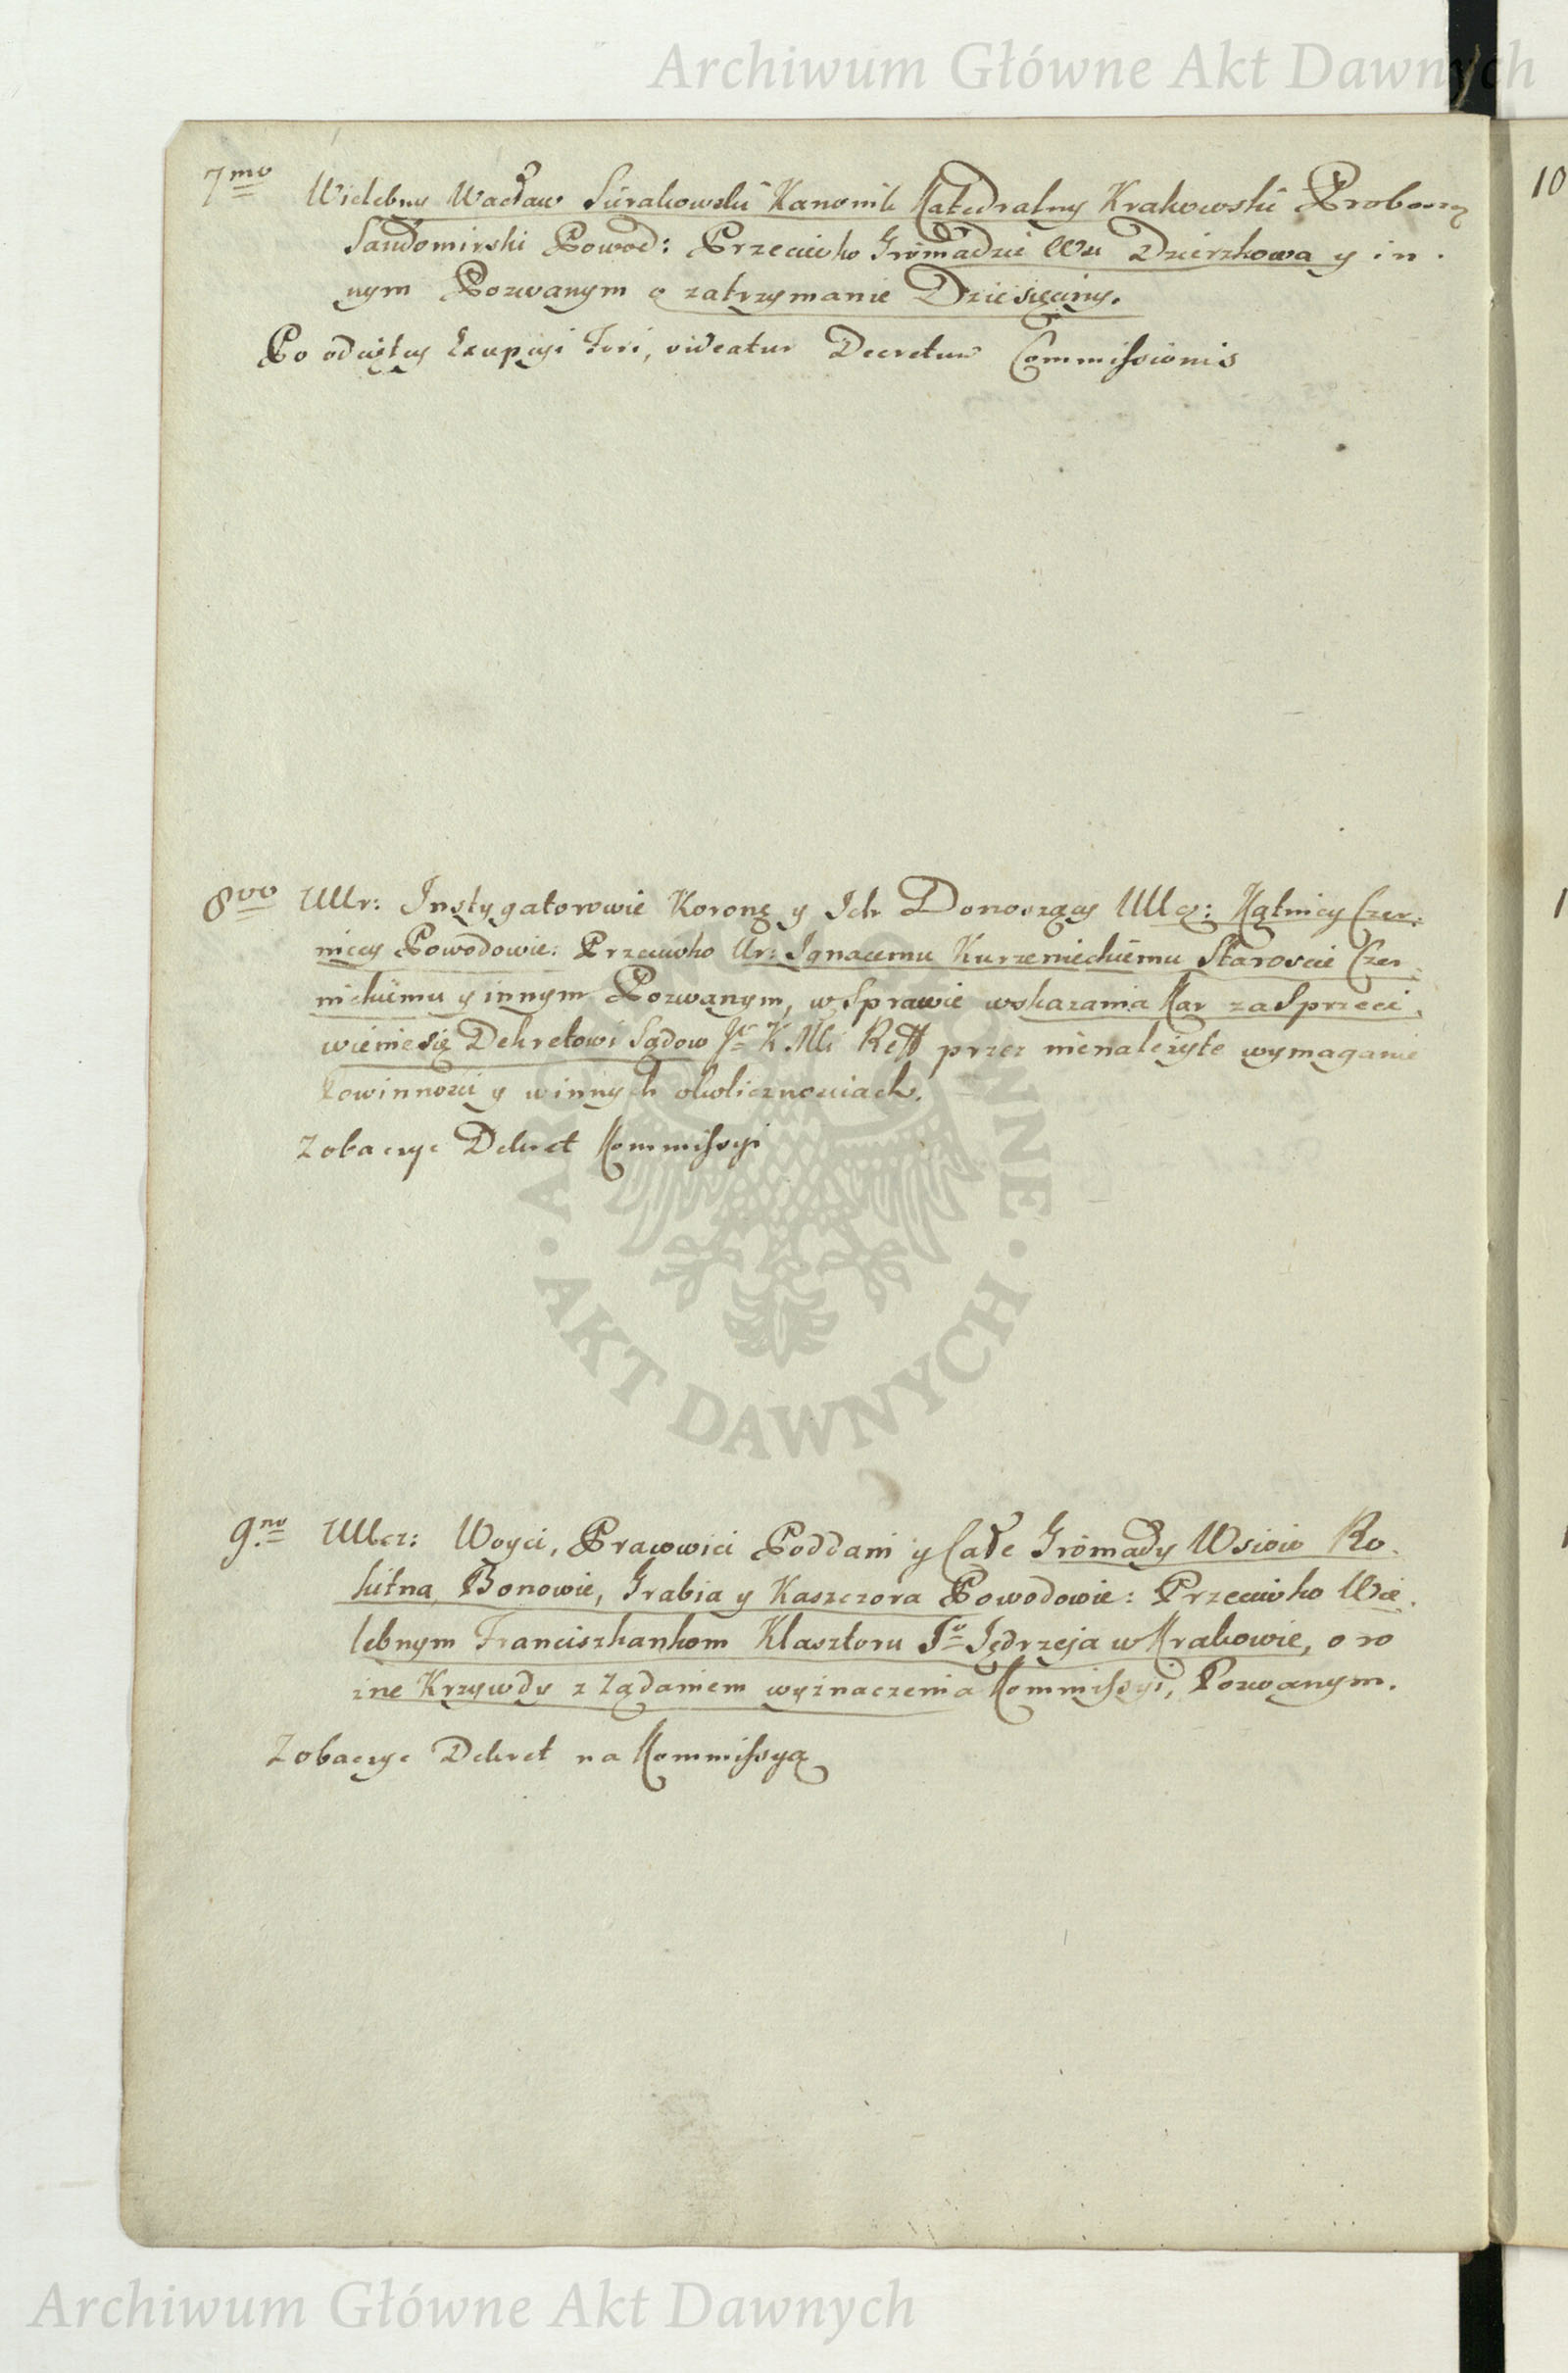 Archiwum Główne Akt Dawnych
7mo Wielebny Wacław Sierakowski Kanonik Katedralny Krakowski Proboszcz
Sandomirski Powod: Przeciwko Gromadzie Wsi Dzierzkowa y in.
nym Pozwanym o zatrzymanie Dziesięciny.
Po odciętey Excepcyi Fori, videatur Decretum Commissionis
8vo Ur: Instygatorowie Korony y Ich Donoszący Ucz: Mątnicy Czer:
niccy Powodowie: Przeciwko Ur: Ignacemu Kurzenieckiemu Staroscie Czer
nickiemu y innym Pozwanym, w Sprawie wskazania Kar za Sprzeci.
wienie się Dekretowi Sądow Jo K Mci Reff przez nienależyte wymaganie
Powinnosci y w innych okolicznosciach.
Zobaczyc Dekret Kommissyi
9no Ucz: Woyci, Pracowici Poddani y Całe Gromady Wsiow Ro.
kitna, Bonowie, Grabia y Kaszczora Powodowie: Przeciwko Wie.
lebnym Franciszkankom Klasztoru So Jędrzeja w Krakowie, o ro
zne Krzywdy z Ządaniem wyznaczenia Kommissyi, Pozwanym.
Zobaczyc Dekret na Kommissyą
10
ARCHIWUM GŁÓWNE • AKT DAWNYCH •
Archiwum Główne Akt Dawnych